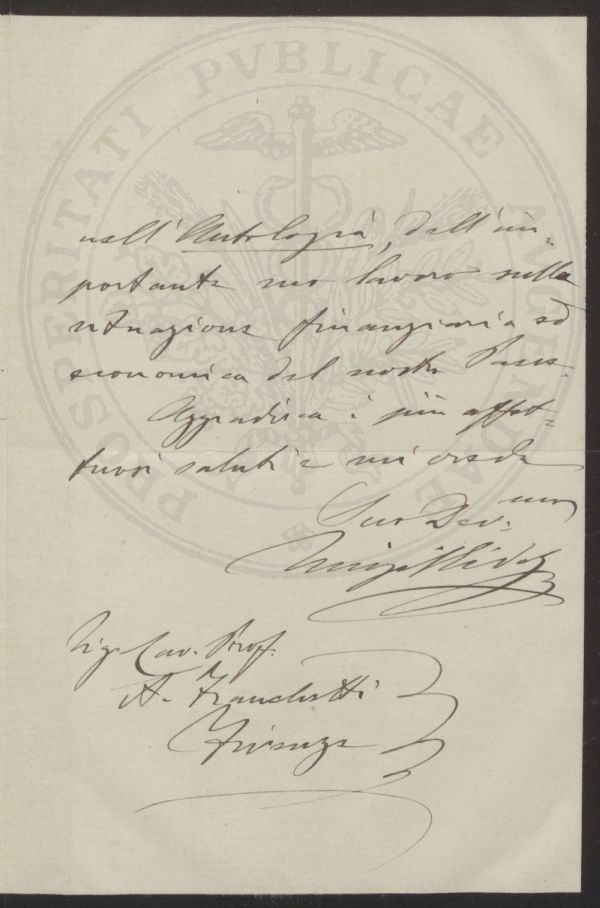 PROSPERITATI PVBLICAE AVGENDAE
nell'Antologia, dell'im-
portante suo lavoro sulla
situazione finanziaria ed
economica del nostro Paese.
Aggradisca i più affet-
tuosi saluti e mi creda
Suo Dev.mo
Sig. Cav. Prof.
A. Franchetti
Firenze